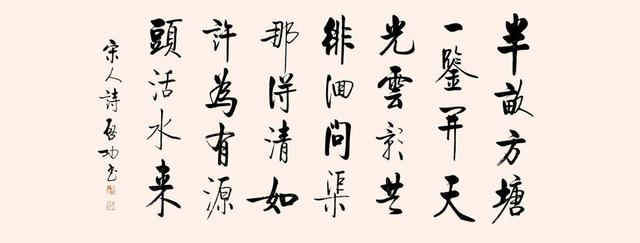 半畝方塘
一鑒開天
光雲影共
徘徊問渠
那得清如
許為有源
頭活水来
宋人詩 啓功書